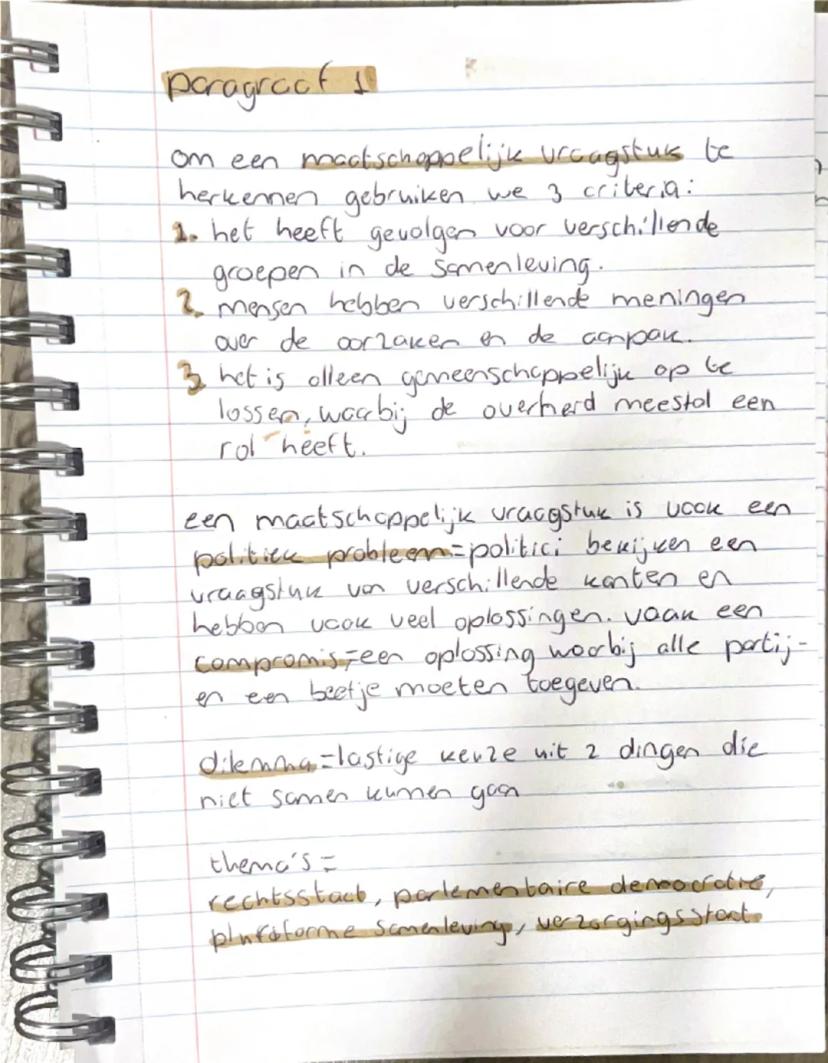 paragraaf 1
om een maatschappelijk vraagstuk te
herkennen gebruiken we 3 criteria:
1. het heeft gevolgen voor verschillende
groepen in de samenleving.
2. mensen hebben verschillende meningen
over de oorzaken en de aanpak.
3 het is alleen gemeenschappelijk op te
lossen, waarbij de overheid meestal een
rol heeft.
een maatschappelijk vraagstuk is vaak een
politiek probleem=politici bekijken een
vraagstuk van verschillende kanten en
hebben vaak veel oplossingen. vaak een
compromis=een oplossing waarbij alle partij-
en een beetje moeten toegeven.
dilemma=lastige keuze uit 2 dingen die
niet samen kunnen gaan
thema's=
rechtsstaat, parlementaire democratie,
pluriforme samenleving, verzorgingsstaat.